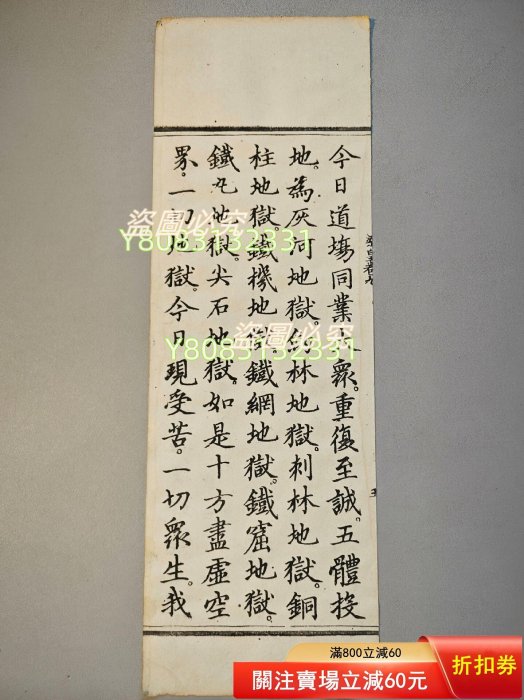 今日道場同業大眾。重復至誠。五體投
地。為灰河地獄。劍林地獄。刺林地獄。銅
柱地獄。鐵機地獄。鐵網地獄。鐵窟地獄。
鐵丸地獄。尖石地獄。如是十方盡虛空
界。一切地獄。今日現受苦。一切眾生。我
盜圖必究
Y8083132331
盜圖必究
Y8083132331
滿800立減60
關注賣場立減60元
折扣券